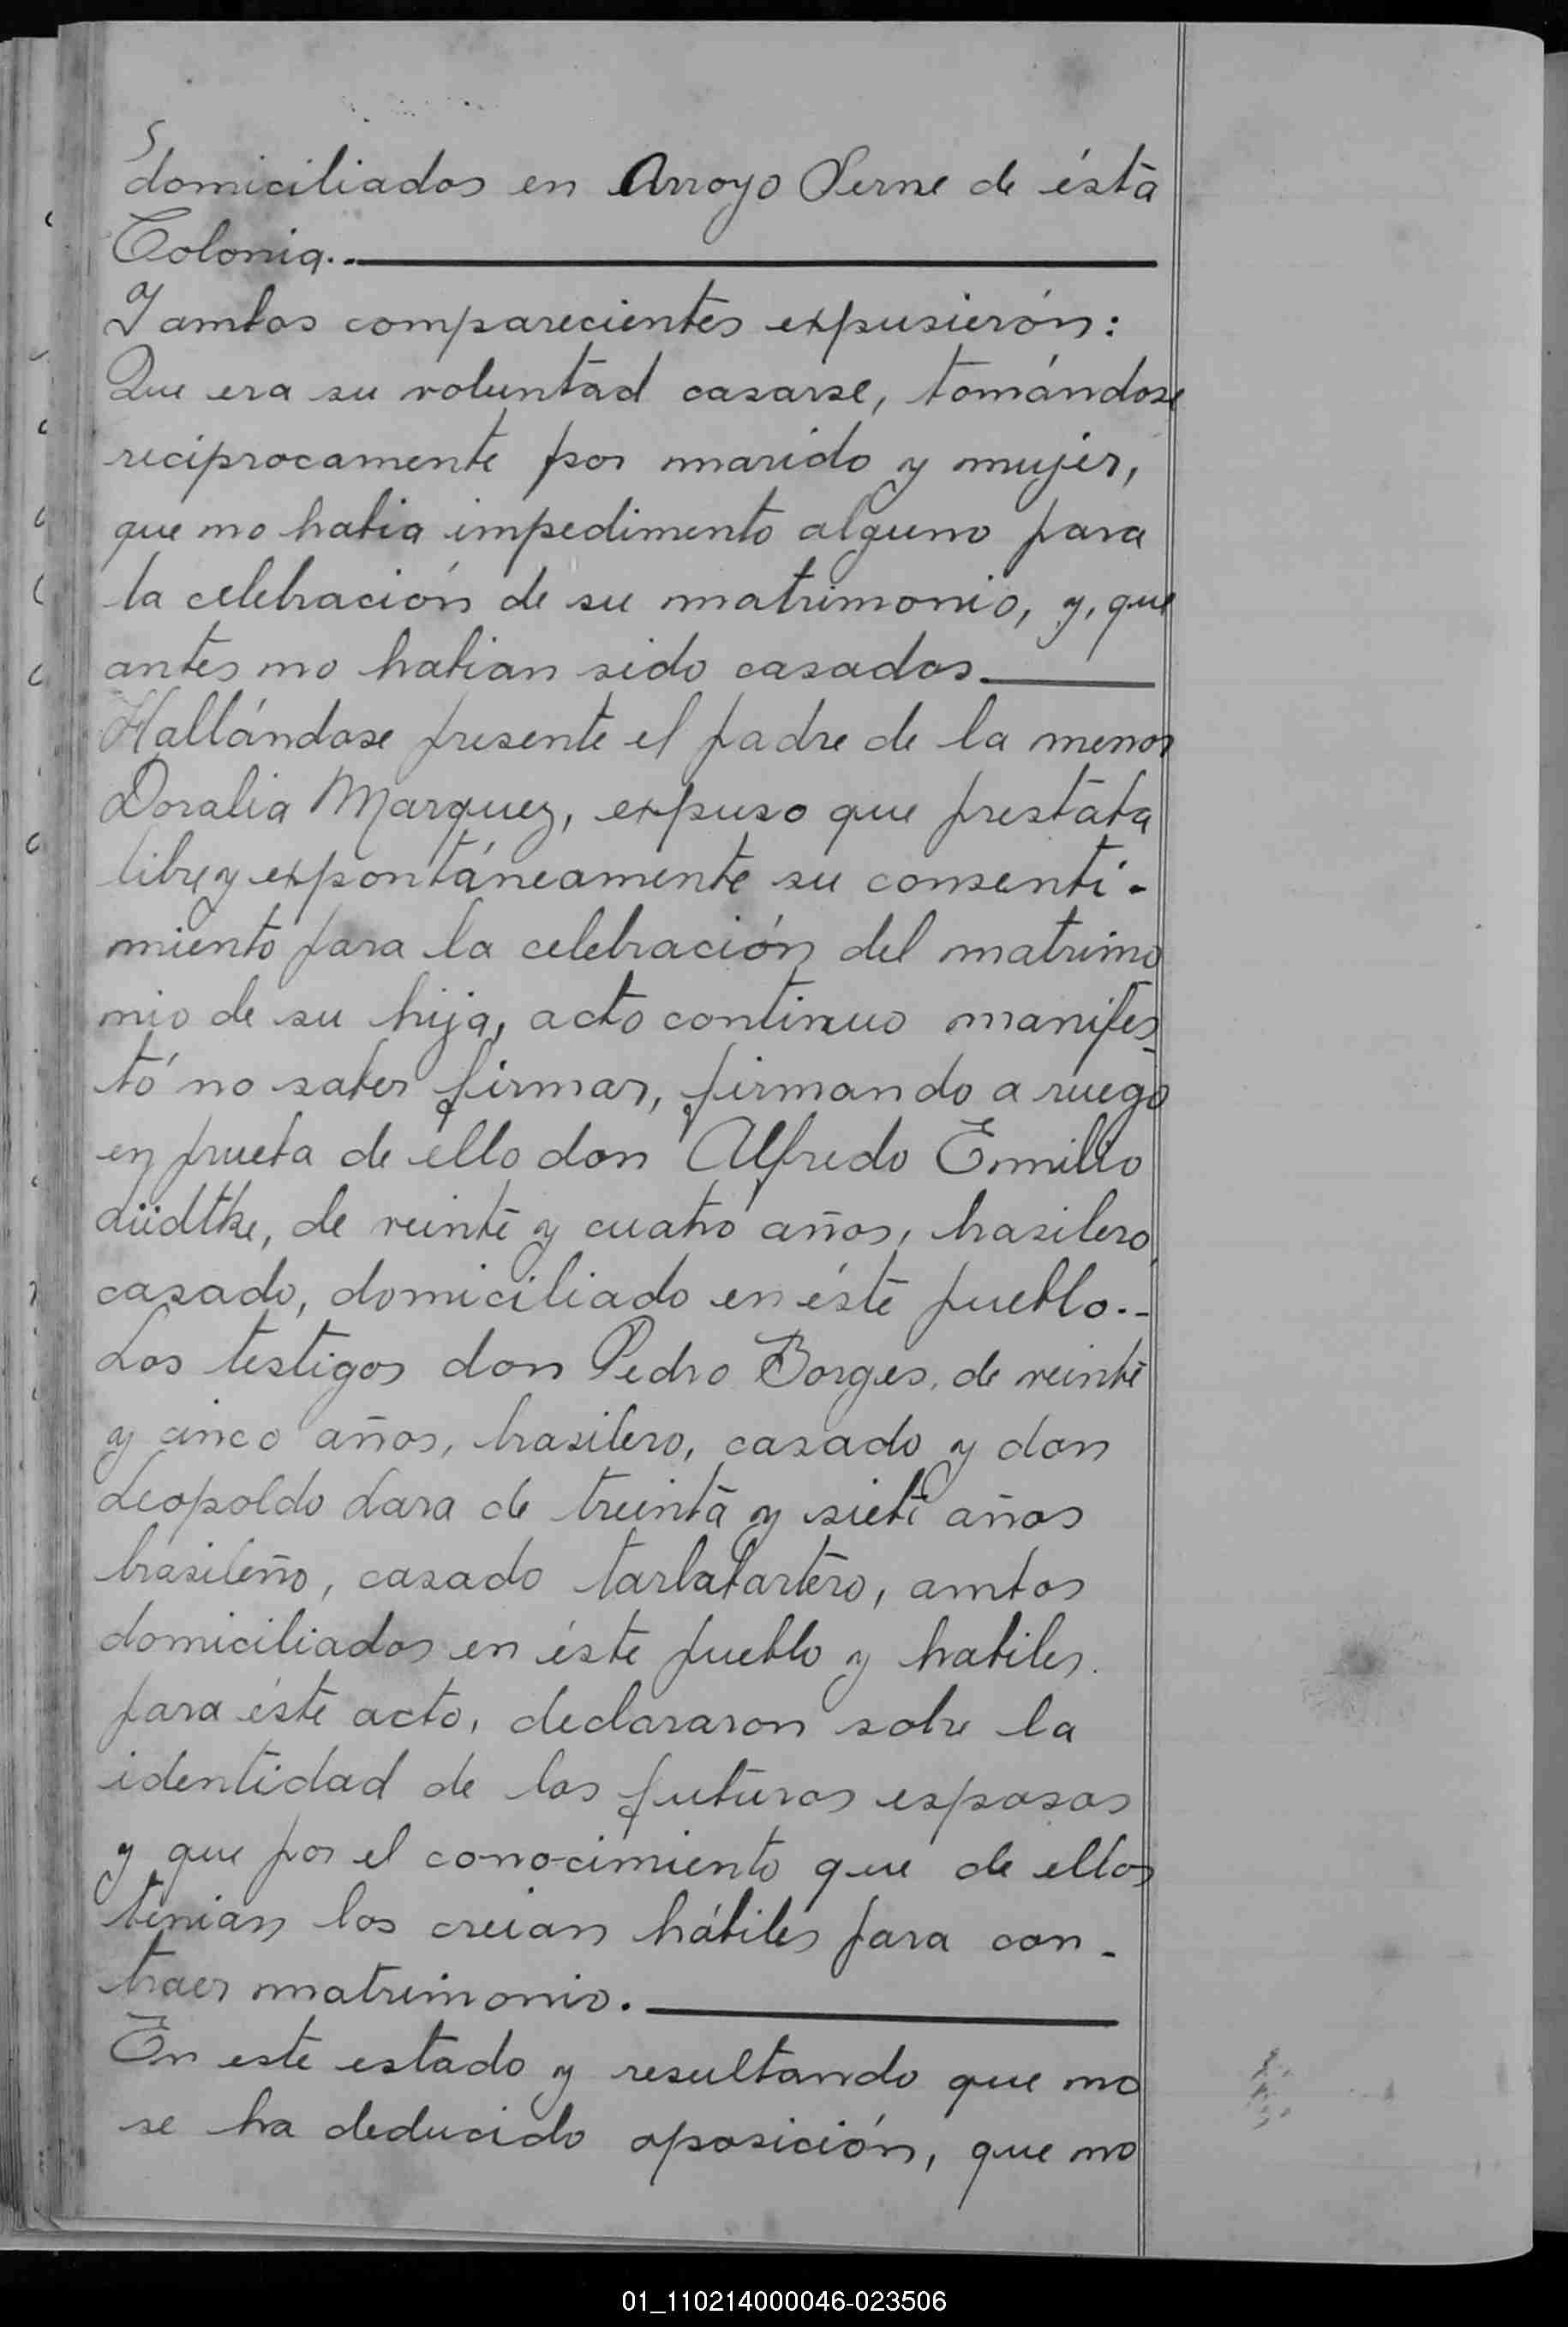 domiciliados en Arroyo Perne de ésta
Colonia.
Y ambos comparecientes expusierón:
Que era su voluntad casarse, tomándose
reciprocamente por marido y mujer,
que no habia impedimento alguno para
la celebración de su matrimonio, y, que
antes no habian sido casados.
Hallándose presente el padre de la menor
Doralia Marquez, expuso que prestaba
libre y expontáneamente su consenti-
miento para la celebración del matrimo
nio de su hija, acto continuo manifes-
tó no saber firmar, firmando a ruego
en prueba de ello don Alfredo Emilio
Lüdtke, de veinte y cuatro años, brasilero,
casado, domiciliado en éste pueblo.-
Los testigos don Pedro Borges, de veinte
y cinco años, brasilero, casado y don
Leopoldo Lara de treinta y siete años
brasileño, casado, ambos
domiciliados en éste pueblo y habiles
para éste acto, declararon sobre la
identidad de los futuros esposos
y que por el conocimiento que de ellos
tenian los creian hábiles para con-
traer matrimonio.
En este estado y resultando que no
se ha deducido oposición, que no
01_110214000046-023506